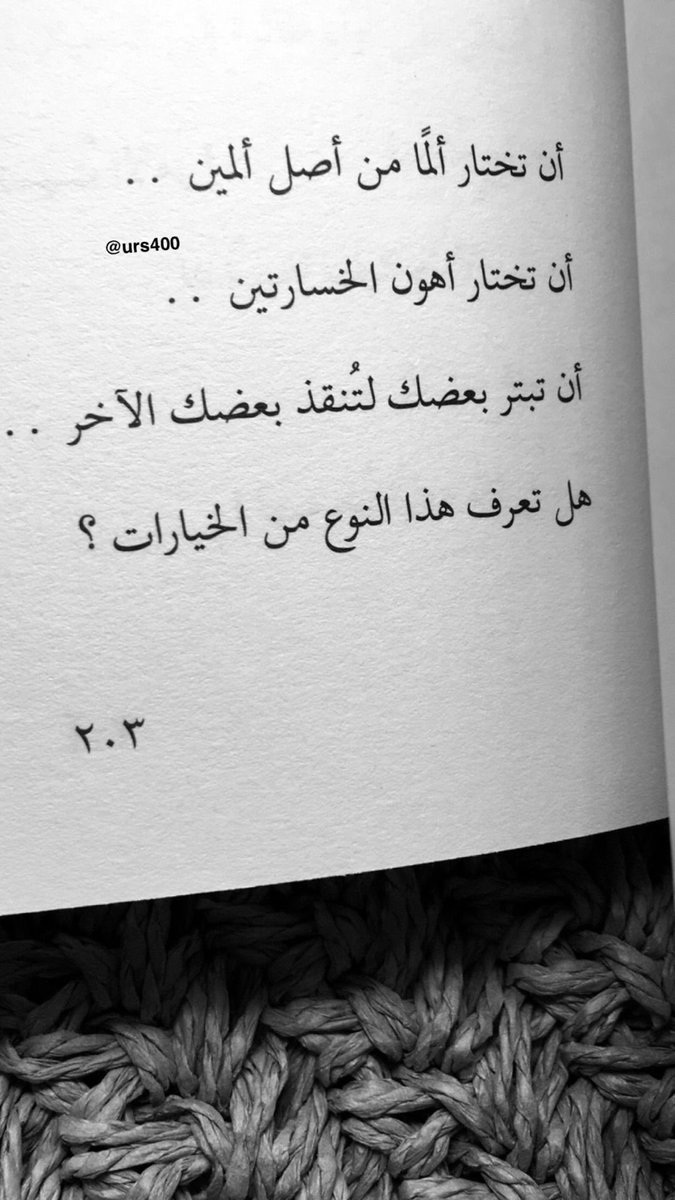 أن تختار ألمًا من أصل ألمين ..
@urs400
أن تختار أهون الخسارتين ..
أن تبتر بعضك لتُنقذ بعضك الآخر ..
هل تعرف هذا النوع من الخيارات ؟
٢٠٣